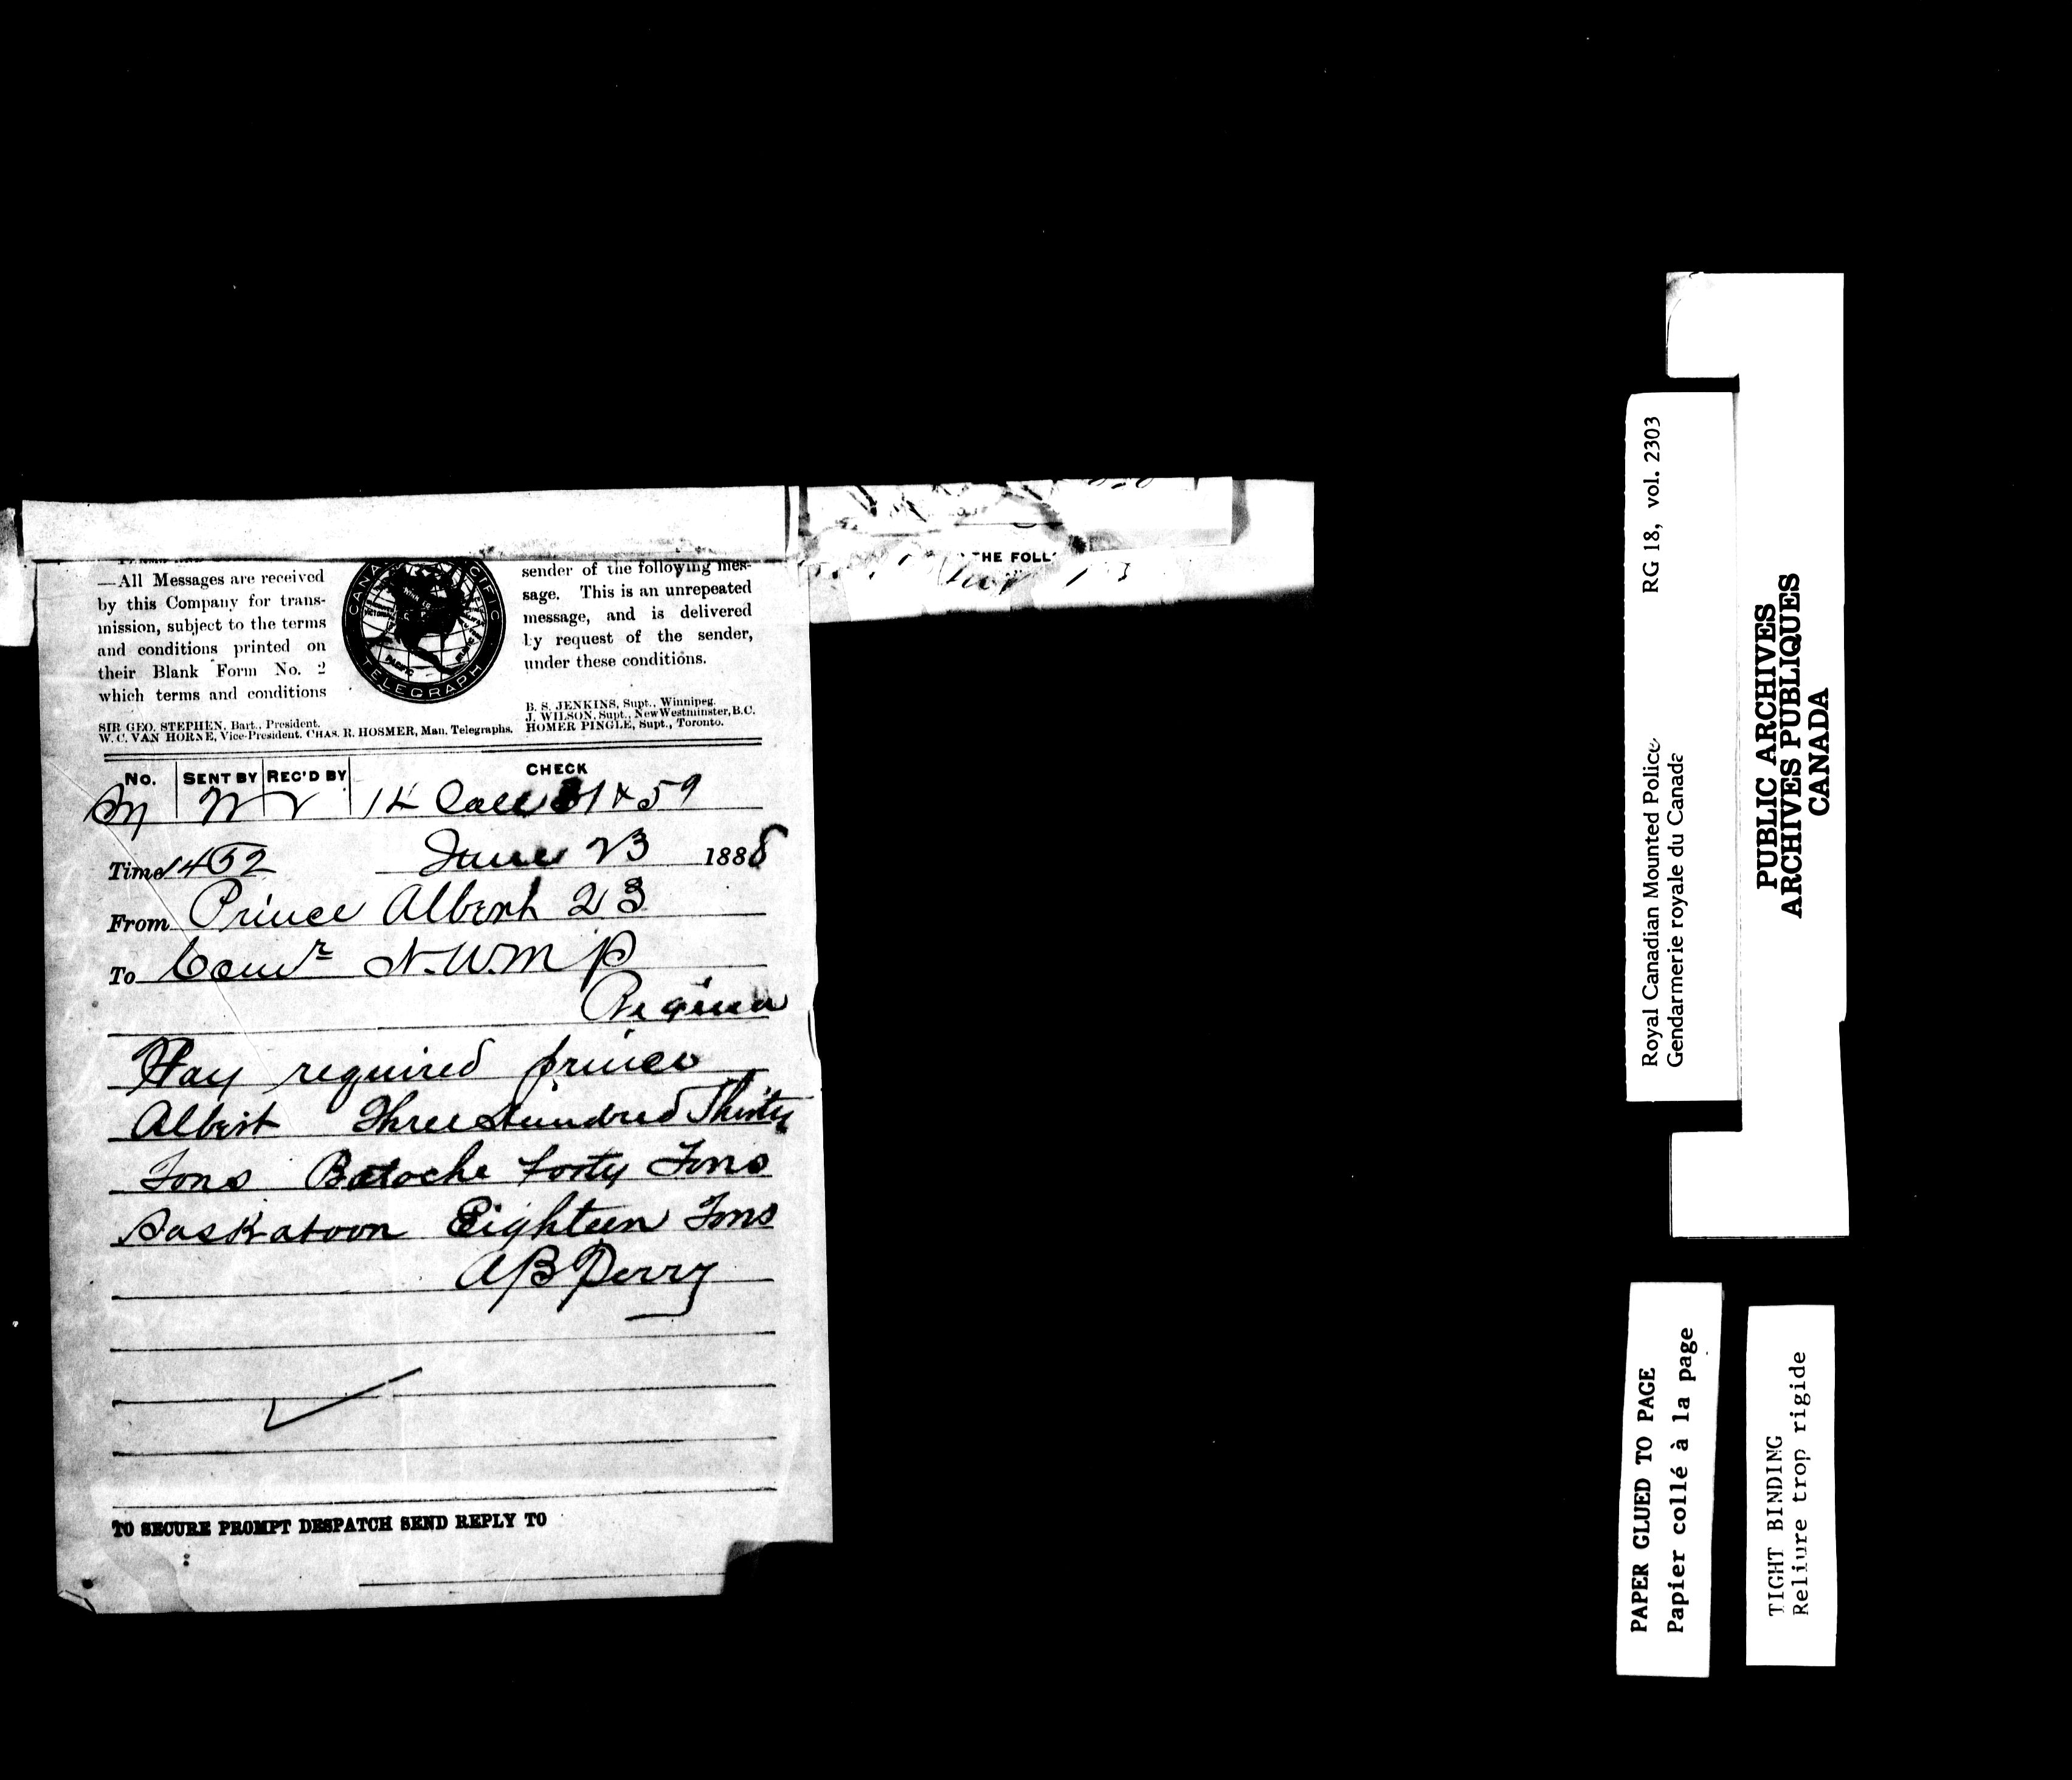 —All Messages are received
by this Company for trans-
mission, subject to the terms
and conditions printed on
their Blank Form No. 2
which terms and conditions
CANA
CIFIC
TELEGRAPH
PACIFIC
sender of the following mes-
sage. This is an unrepeated
message, and is delivered
by request of the sender,
under these conditions.
SIR GEO. STEPHEN, Bart., President.
W. C. VAN HORNE, Vice-President. CHAS. R. HOSMER, Man. Telegraphs.
B. S. JENKINS, Supt., Winnipeg.
J. WILSON, Supt., New Westminster, B.C.
HOMER PINGLE, Supt., Toronto.
No. SENT BY REC'D BY CHECK
14 Coll 31 & 59
Time 1452 June 23 1888
From Prince Albert 23
To Comr N.W.M P
Regina
Hay required prince
Albert Three Hundred Thirty
Tons Batoche forty Tons
Saskatoon Eighteen Tons
A B Perry
TO SECURE PROMPT DESPATCH SEND REPLY TO
THE FOLL
RG 18, vol. 2303
Royal Canadian Mounted Police
Gendarmerie royale du Canada
PUBLIC ARCHIVES
ARCHIVES PUBLIQUES
CANADA
PAPER GLUED TO PAGE
Papier collé à la page
TIGHT BINDING
Reliure trop rigide